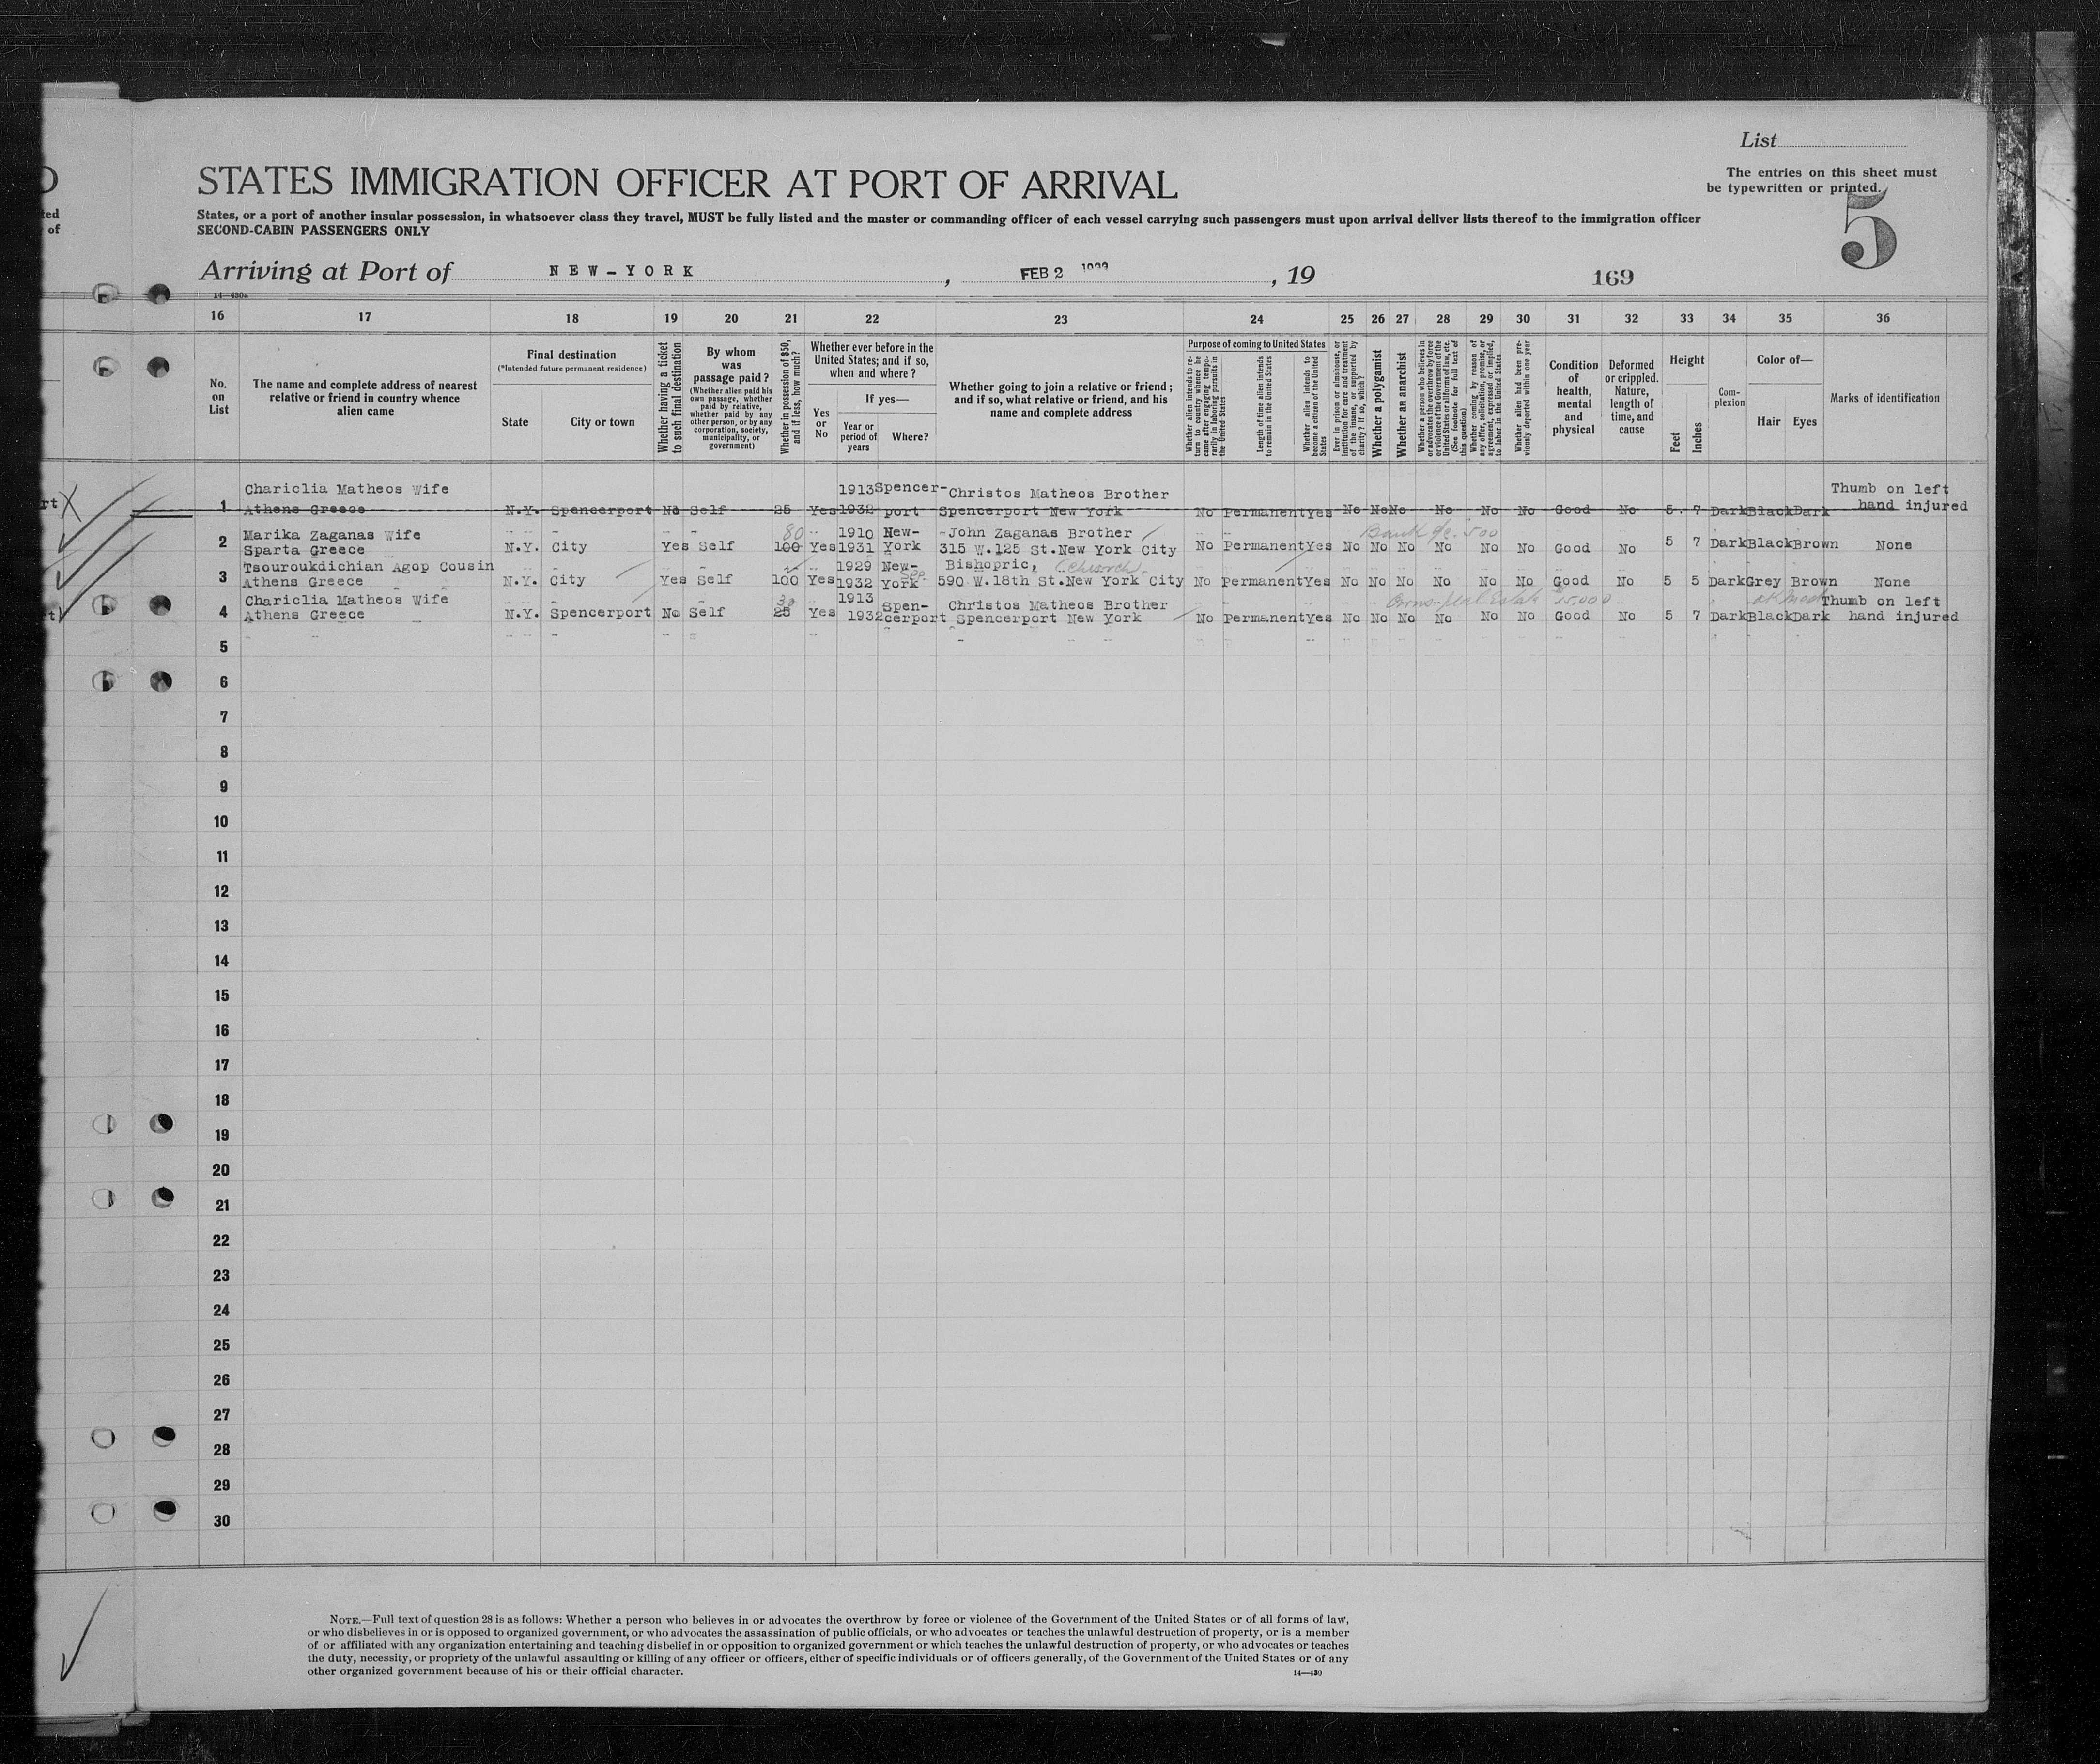 List
The entries on this sheet must
be typewritten or printed.
5
STATES IMMIGRATION OFFICER AT PORT OF ARRIVAL
States, or a port of another insular possession, in whatsoever class they travel, MUST be fully listed and the master or commanding officer of each vessel carrying such passengers must upon arrival deliver lists thereof to the immigration officer
SECOND-CABIN PASSENGERS ONLY
Arriving at Port of NEW-YORK, FEB 2, 19
169
14—430a
16 17 18 19 20 21 22 23 24 25 26 27 28 29 30 31 32 33 34 35 36
No. on List
The name and complete address of nearest relative or friend in country whence alien came
Final destination
(*Intended future permanent residence)
State
City or town
Whether having a ticket to such final destination
By whom was passage paid?
(Whether alien paid his own passage, whether paid by relative, whether paid by any other person, or by any corporation, society, municipality, or government)
Whether in possession of $50, and if less, how much?
Whether ever before in the United States; and if so, when and where?
Yes or No
If yes—
Year or period of years
Where?
Whether going to join a relative or friend; and if so, what relative or friend, and his name and complete address
Purpose of coming to United States
Whether alien intends to return to country whence he came after engaging temporarily in laboring pursuits in the United States
Length of time alien intends to remain in the United States
Whether alien intends to become a citizen of the United States
Ever in prison or almshouse, or institution for care and treatment of the insane, or supported by charity? If so, which?
Whether a polygamist
Whether an anarchist
Whether a person who believes in or advocates the overthrow by force or violence of the Government of the United States or all forms of law, etc. (See footnote for full text of this question)
Whether coming by reason of any offer, solicitation, promise, or agreement, expressed or implied, to labor in the United States
Whether alien had been previously deported within one year
Condition of health, mental and physical
Deformed or crippled. Nature, length of time, and cause
Height
Feet
Inches
Complexion
Color of—
Hair
Eyes
Marks of identification
Chariclia Matheos Wife 1913 Spencer- Christos Matheos Brother Thumb on left
1 Athens Greece N.Y. Spencerport No Self 25 Yes 1932 port Spencerport New York No Permanent Yes No No No No No No Good No 5 7 Dark Black Dark hand injured
Marika Zaganas Wife 80 1910 New- -John Zaganas Brother Bank a/c. 500
2 Sparta Greece N.Y. City Yes Self 100 Yes 1931 York 315 W.125 St.New York City No Permanent Yes No No No No No No Good No 5 7 Dark Black Brown None
Tsouroukdichian Agop Cousin 1929 New- Bishopric, (church)
3 Athens Greece N.Y. City Yes Self 100 Yes 1932 York 590 W.18th St.New York City No Permanent Yes No No No No No No Good No 5 5 Dark Grey Brown None
Chariclia Matheos Wife 30 1913 Spen- Christos Matheos Brother Owns-real Estate Thumb on left
4 Athens Greece N.Y. Spencerport No Self 25 Yes 1932 cerport Spencerport New York No Permanent Yes No No No No No No Good No 5 7 Dark Black Dark hand injured
5
6
7
8
9
10
11
12
13
14
15
16
17
18
19
20
21
22
23
24
25
26
27
28
29
30
NOTE.—Full text of question 28 is as follows: Whether a person who believes in or advocates the overthrow by force or violence of the Government of the United States or of all forms of law,
or who disbelieves in or is opposed to organized government, or who advocates the assassination of public officials, or who advocates or teaches the unlawful destruction of property, or is a member
of or affiliated with any organization entertaining and teaching disbelief in or opposition to organized government or which teaches the unlawful destruction of property, or who advocates or teaches
the duty, necessity, or propriety of the unlawful assaulting or killing of any officer or officers, either of specific individuals or of officers generally, of the Government of the United States or of any
other organized government because of his or their official character.
14—430